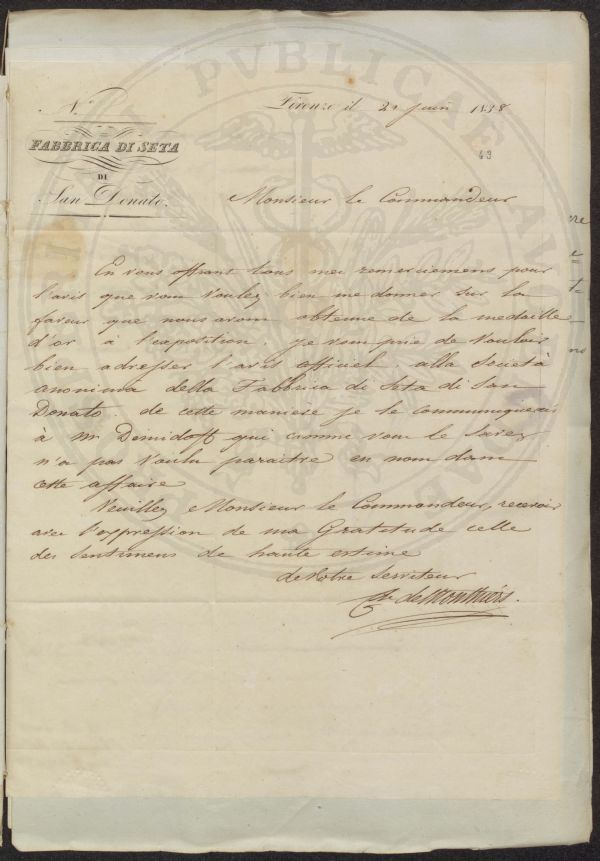 N.
FABBRICA DI SETA
DI
San Donato.
Firenze il 21 juin 1838
43
Monsieur le Commandeur
En vous offrant tous mes remerciemens pour
l'avis que vous voulez bien me donner sur la
faveur que nous avons obtenue de la medaille
d'or à l'exposition, je vous prie de vouloir
bien adresser l'avis officiel, alla Società
anonima della Fabbrica di Seta di San
Donato. de cette maniere je le communiquerai
à Mr Demidoff qui comme vous le savez
n'a pas voulu paraitre en nom dans
cette affaire
Veuillez Monsieur le Commandeur, recevoir
avec l'expression de ma Gratitude celle
des sentimens de haute estime
de Votre Serviteur
de Monthiers.
PVBLICAE